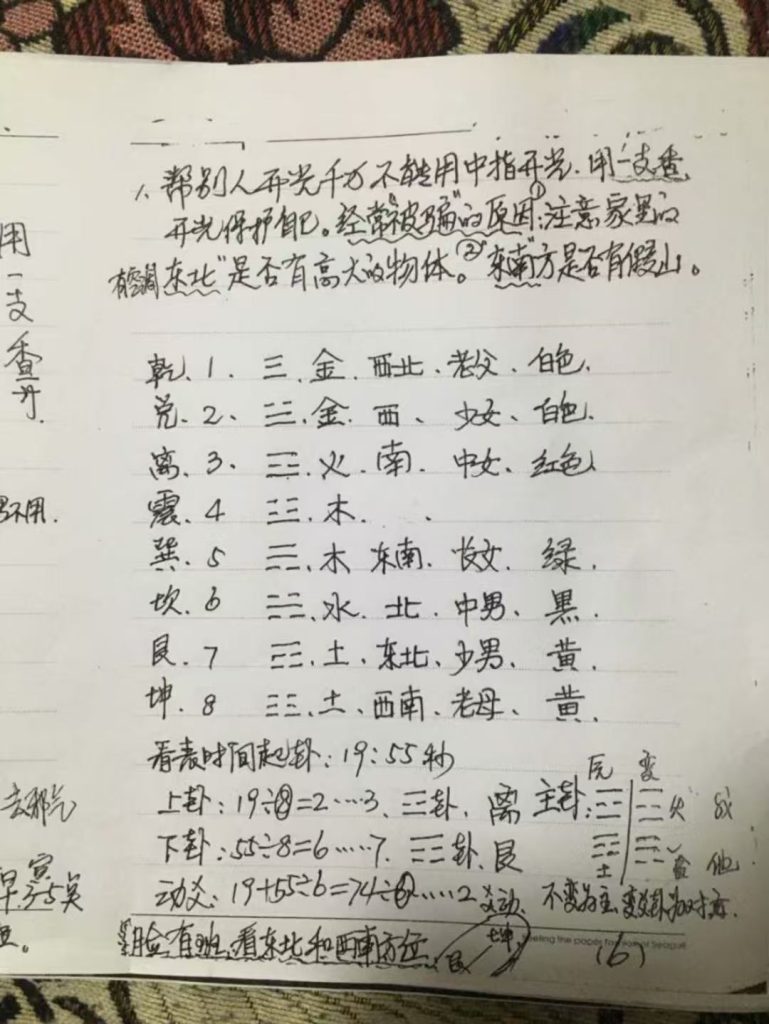 1、帮别人开光千万不能用中指开光.用一支香
开光保护自己。经常“被骗”的原因:①注意家里的
“东北”是否有高大的物体。②“东南”方是否有假山。
乾、1、☰、金、西北、老父、白色.
兑、2、☱、金、西、少女、白色.
离、3、☲、火、南、中女、红色
震、4 ☳、木、
巽、5 ☴、木 东南、长女、绿.
坎、6 ☵、水、北、中男、黑.
艮、7 ☶、土、东北、少男、黄.
坤、8 ☷、土、西南、老母、黄.
看表时间起卦:19:55秒
上卦:19÷8=2……3、☲卦、离 主卦:
下卦:55÷8=6……7、☶卦、艮
动爻:19+55÷6=74÷6……2爻动、不变为主,变
脸有斑,看东北和西南方位
艮 坤
(6)
原 变
火 我
土 他
用
一
支
香
开
不用.
去邪气
早 寅
3-5